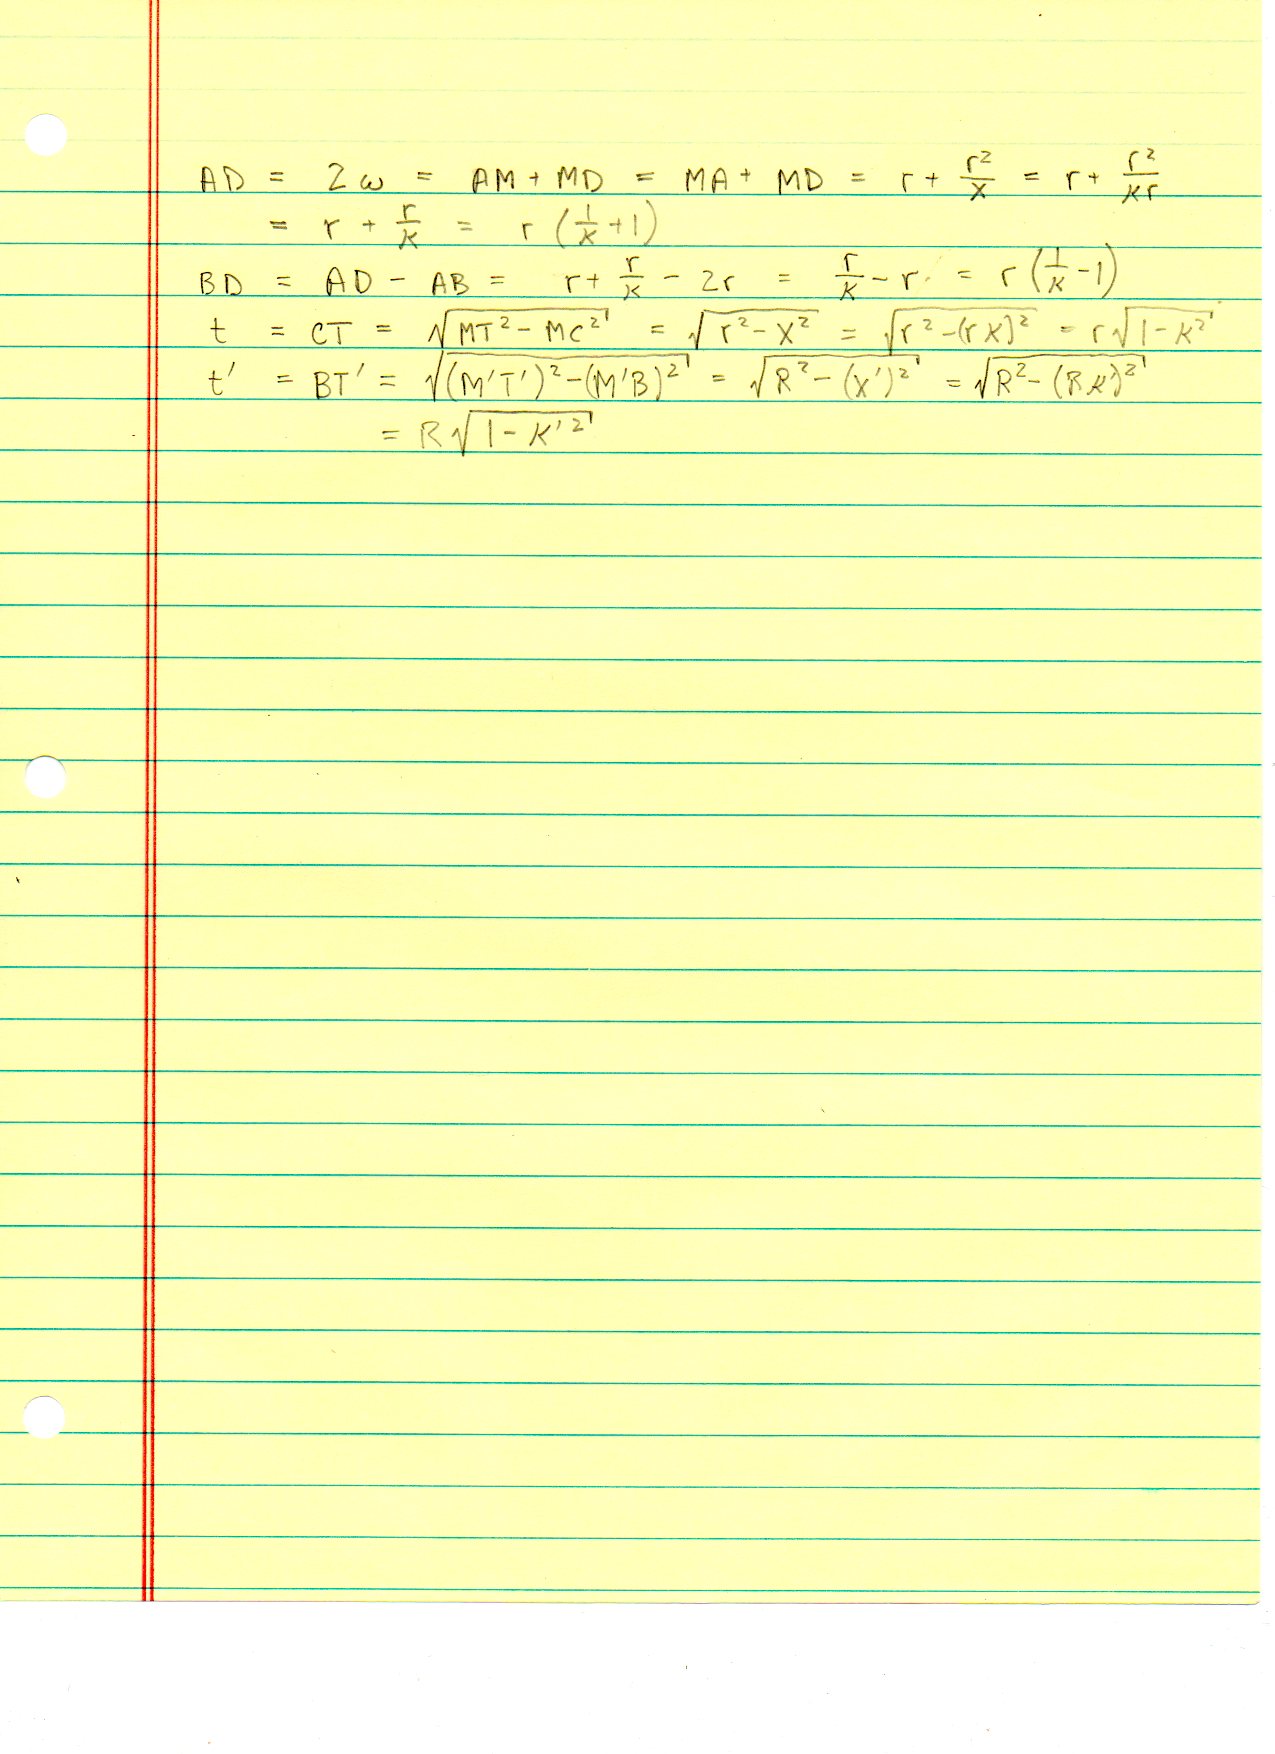 AD = 2ω = AM + MD = MA + MD = r + r²/x = r + r²/kr
= r + r/k = r (1/k + 1)
BD = AD - AB = r + r/k - 2r = r/k - r = r (1/k - 1)
t = CT = √(MT² - MC²) = √(r² - x²) = √(r² - (rk)²) = r√(1 - k²)
t' = BT' = √((M'T')² - (M'B)²) = √(R² - (x')²) = √(R² - (Rk')²)
= R√(1 - k'²)